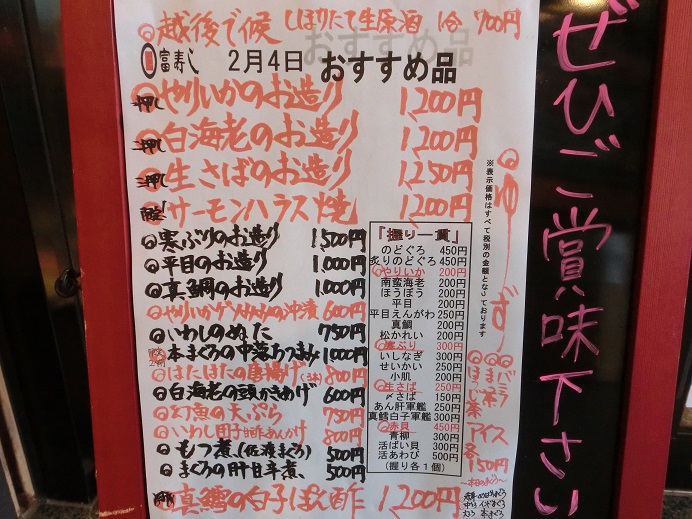 越後で候 しぼりたて生原酒 1合 700円
富寿し 2月4日 おすすめ品
やりいかのお造り 1,200円
白海老のお造り 1,200円
生さばのお造り 1,250円
サーモンハラス焼 1,200円
寒ぶりのお造り 1,500円
平目のお造り 1,000円
真鯛のお造り 1,000円
やりいかゲソメカメカの沖漬 600円
いわしのぬた 750円
本まぐろの中落おつまみ 1,000円
はたはたの唐揚げ 800円
白海老の頭かきあげ 600円
幻魚の天ぷら 750円
いわし団子甘酢あんかけ 800円
もつ煮(佐渡まぐろ) 500円
まぐろの肝甘辛煮 500円
真鱈の白子ぽん酢 1,200円
『握り一貫』
のどぐろ 450円
炙りのどぐろ 450円
やりいか 200円
南蛮海老 200円
ほうぼう 200円
平目 200円
平目えんがわ 250円
真鯛 200円
松かれい 200円
寒ぶり 300円
いしなぎ 300円
せいかい 250円
小肌 200円
生さば 250円
〆さば 150円
あん肝軍艦 250円
真鱈白子軍艦 300円
赤貝 450円
青柳 300円
活ばい貝 300円
活あわび 500円
(握り各1個)
※表示価格はすべて税別の金額となっております
ゆーず
バニラ
ほうじ茶
アイス
各150円
ぜひご賞味下さい